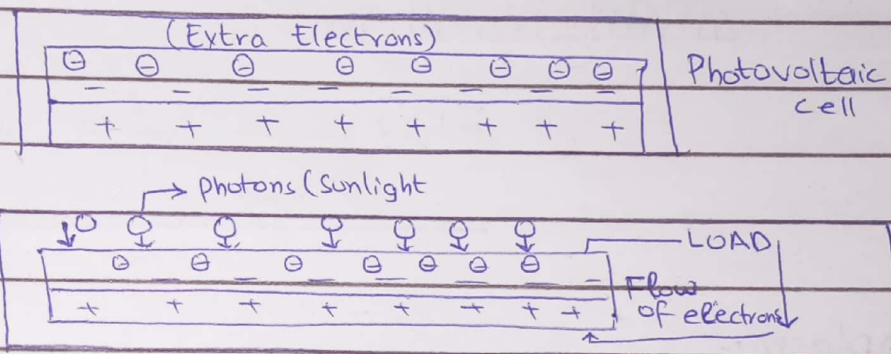 (Extra Electrons)
⊖ ⊖ ⊖ ⊖ ⊖ ⊖ ⊖ ⊖
− − − − − − − −
+ + + + + + + +
Photovoltaic
cell
photons (Sunlight
LOAD
⊖ ⊖ ⊖ ⊖ ⊖ ⊖ ⊖
− − − − − − −
+ + + + + + + +
Flow
of electrons